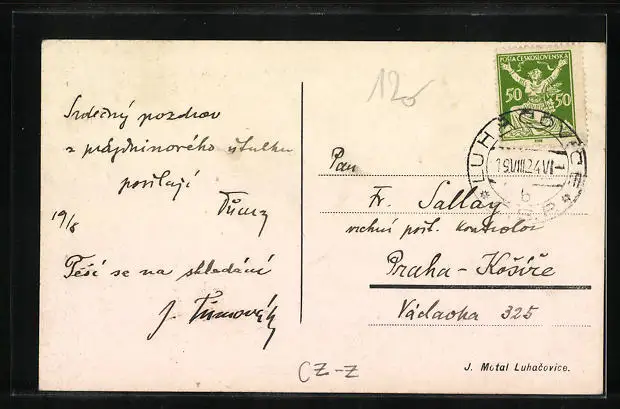 120
POŠTA ČESKOSLOVENSKÁ
50 50
LUHAČOVICE
19.VIII.24.VI-
b
Srdečný pozdrav
z prázdninového útulku
posílají
19/8
Těší se na shledání
J.
Pan
Fr. Sallay
vrchní pošt. kontrolor
Praha - Košíře
325
CZ-Z
J. Motal Luhačovice.